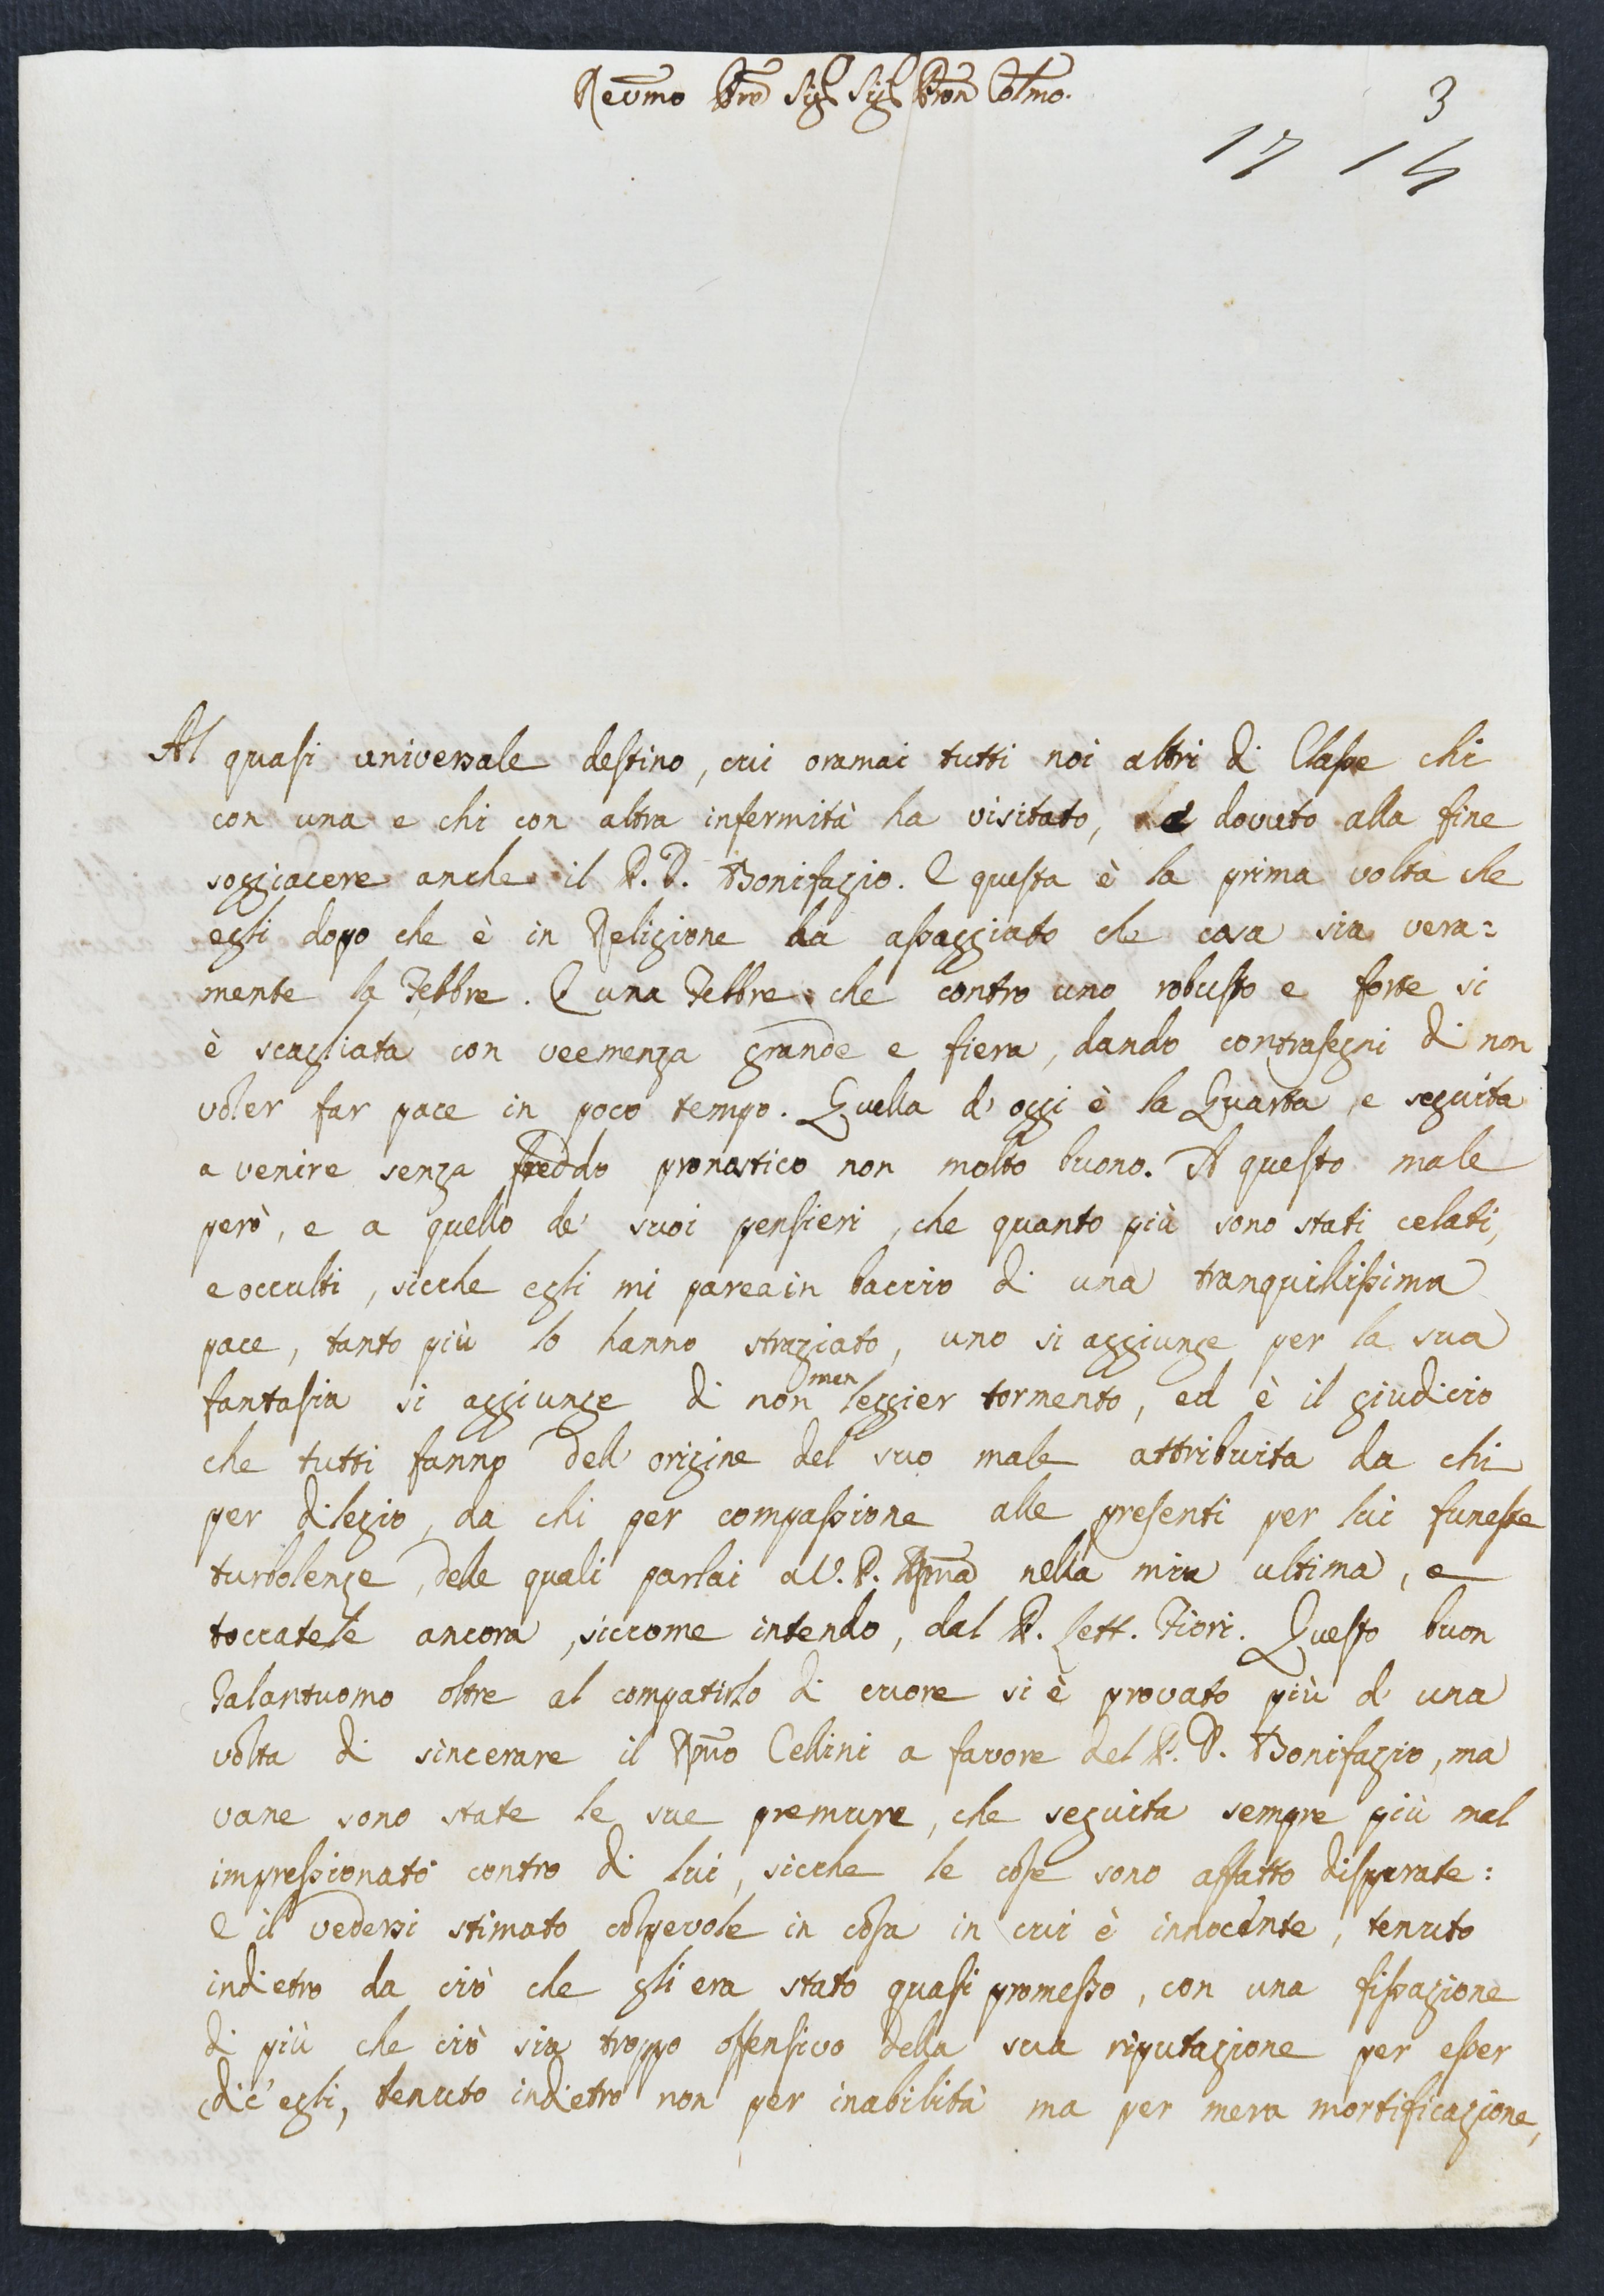 Reũmo Pre Sig Sig Pron Colmo.
3
17 14
Al quasi universale destino, cui oramai tutti noi altri di Classe chi
con una e chi con altra infermità ha visitato, ha dovuto alla fine
soggiacere anche il P. D. Bonifazio. E questa è la prima volta che
egli dopo che è in Religione ha assaggiato che cosa sia vera=
mente la Febbre. E una Febbre che contro uno robusto e forte si
è scagliata con veemenza grande e fiera, dando contrasegni di non
voler far pace in poco tempo. Quella d'oggi è la Quarta, e seguita
a venire senza freddo pronostico non molto buono. A questo male
però, e a quello de' suoi pensieri, che quanto più sono stati celati,
e occulti, sicche egli mi parea in baccio di una tranquillissima
pace, tanto più lo hanno straziato, uno si aggiunge per la sua
fantasia si aggiunge di non men leggier tormento, ed è il giudicio
che tutti fanno dell'origine del suo male attribuita da chi
per dilegio, da chi per compassione alle presenti per lui funeste
turbolenze, delle quali parlai a V. P. Rṽma nella mia ultima, e
toccatele ancora, siccome intendo, dal P. Lett. Fiori. Questo buon
Galantuomo oltre al compatirlo di cuore si è provato più d'una
volta di sincerare il Rṽmo Cellini a favore del P. D. Bonifazio, ma
vane sono state le sue premure, che seguita sempre più mal
impressionato contro di lui, sicche le cose sono affatto disperate:
E il vedersi stimato colpevole in cosa in cui è innocente, tenuto
indietro da ciò che gli era stato quasi promesso, con una fissazione
di più che ciò sia troppo offensivo della sua riputazione per esser
dic'egli, tenuto indietro non per inabilità ma per mera mortificazione,